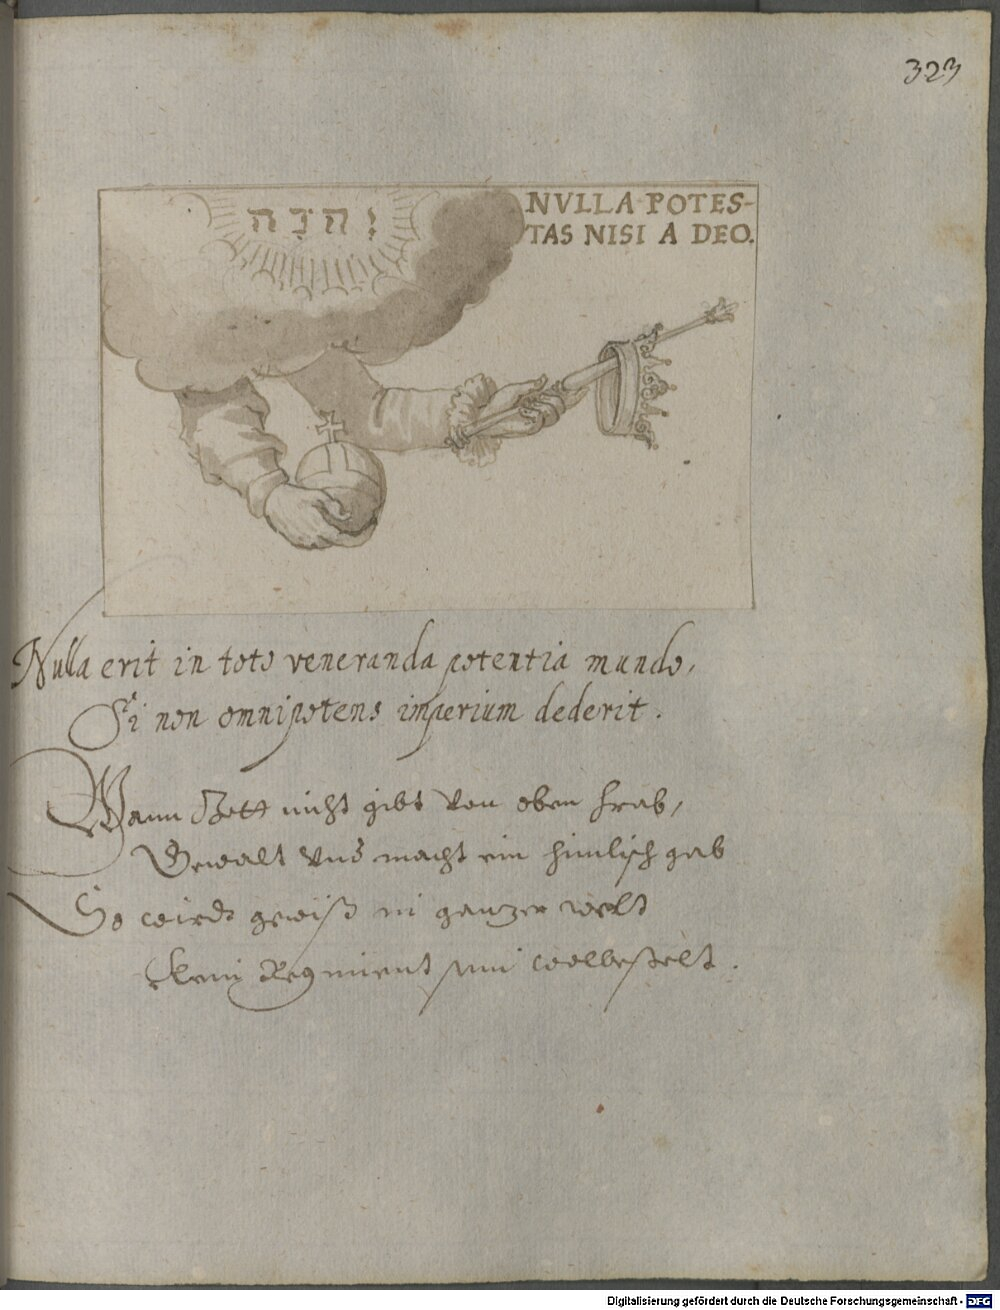 323
יהוה
NVLLA POTES-
TAS NISI A DEO.
Nulla erit in toto veneranda potentia mundo,
Si non omnipotens imperium dederit.
Wann Gott nicht gibt von oben herab,
Gewalt vnd macht ein himlisch gab
So wirdt gewiß in gantzer welt
Kein Regiment sein wollbestelt.
Digitalisierung gefördert durch die Deutsche Forschungsgemeinschaft - DFG